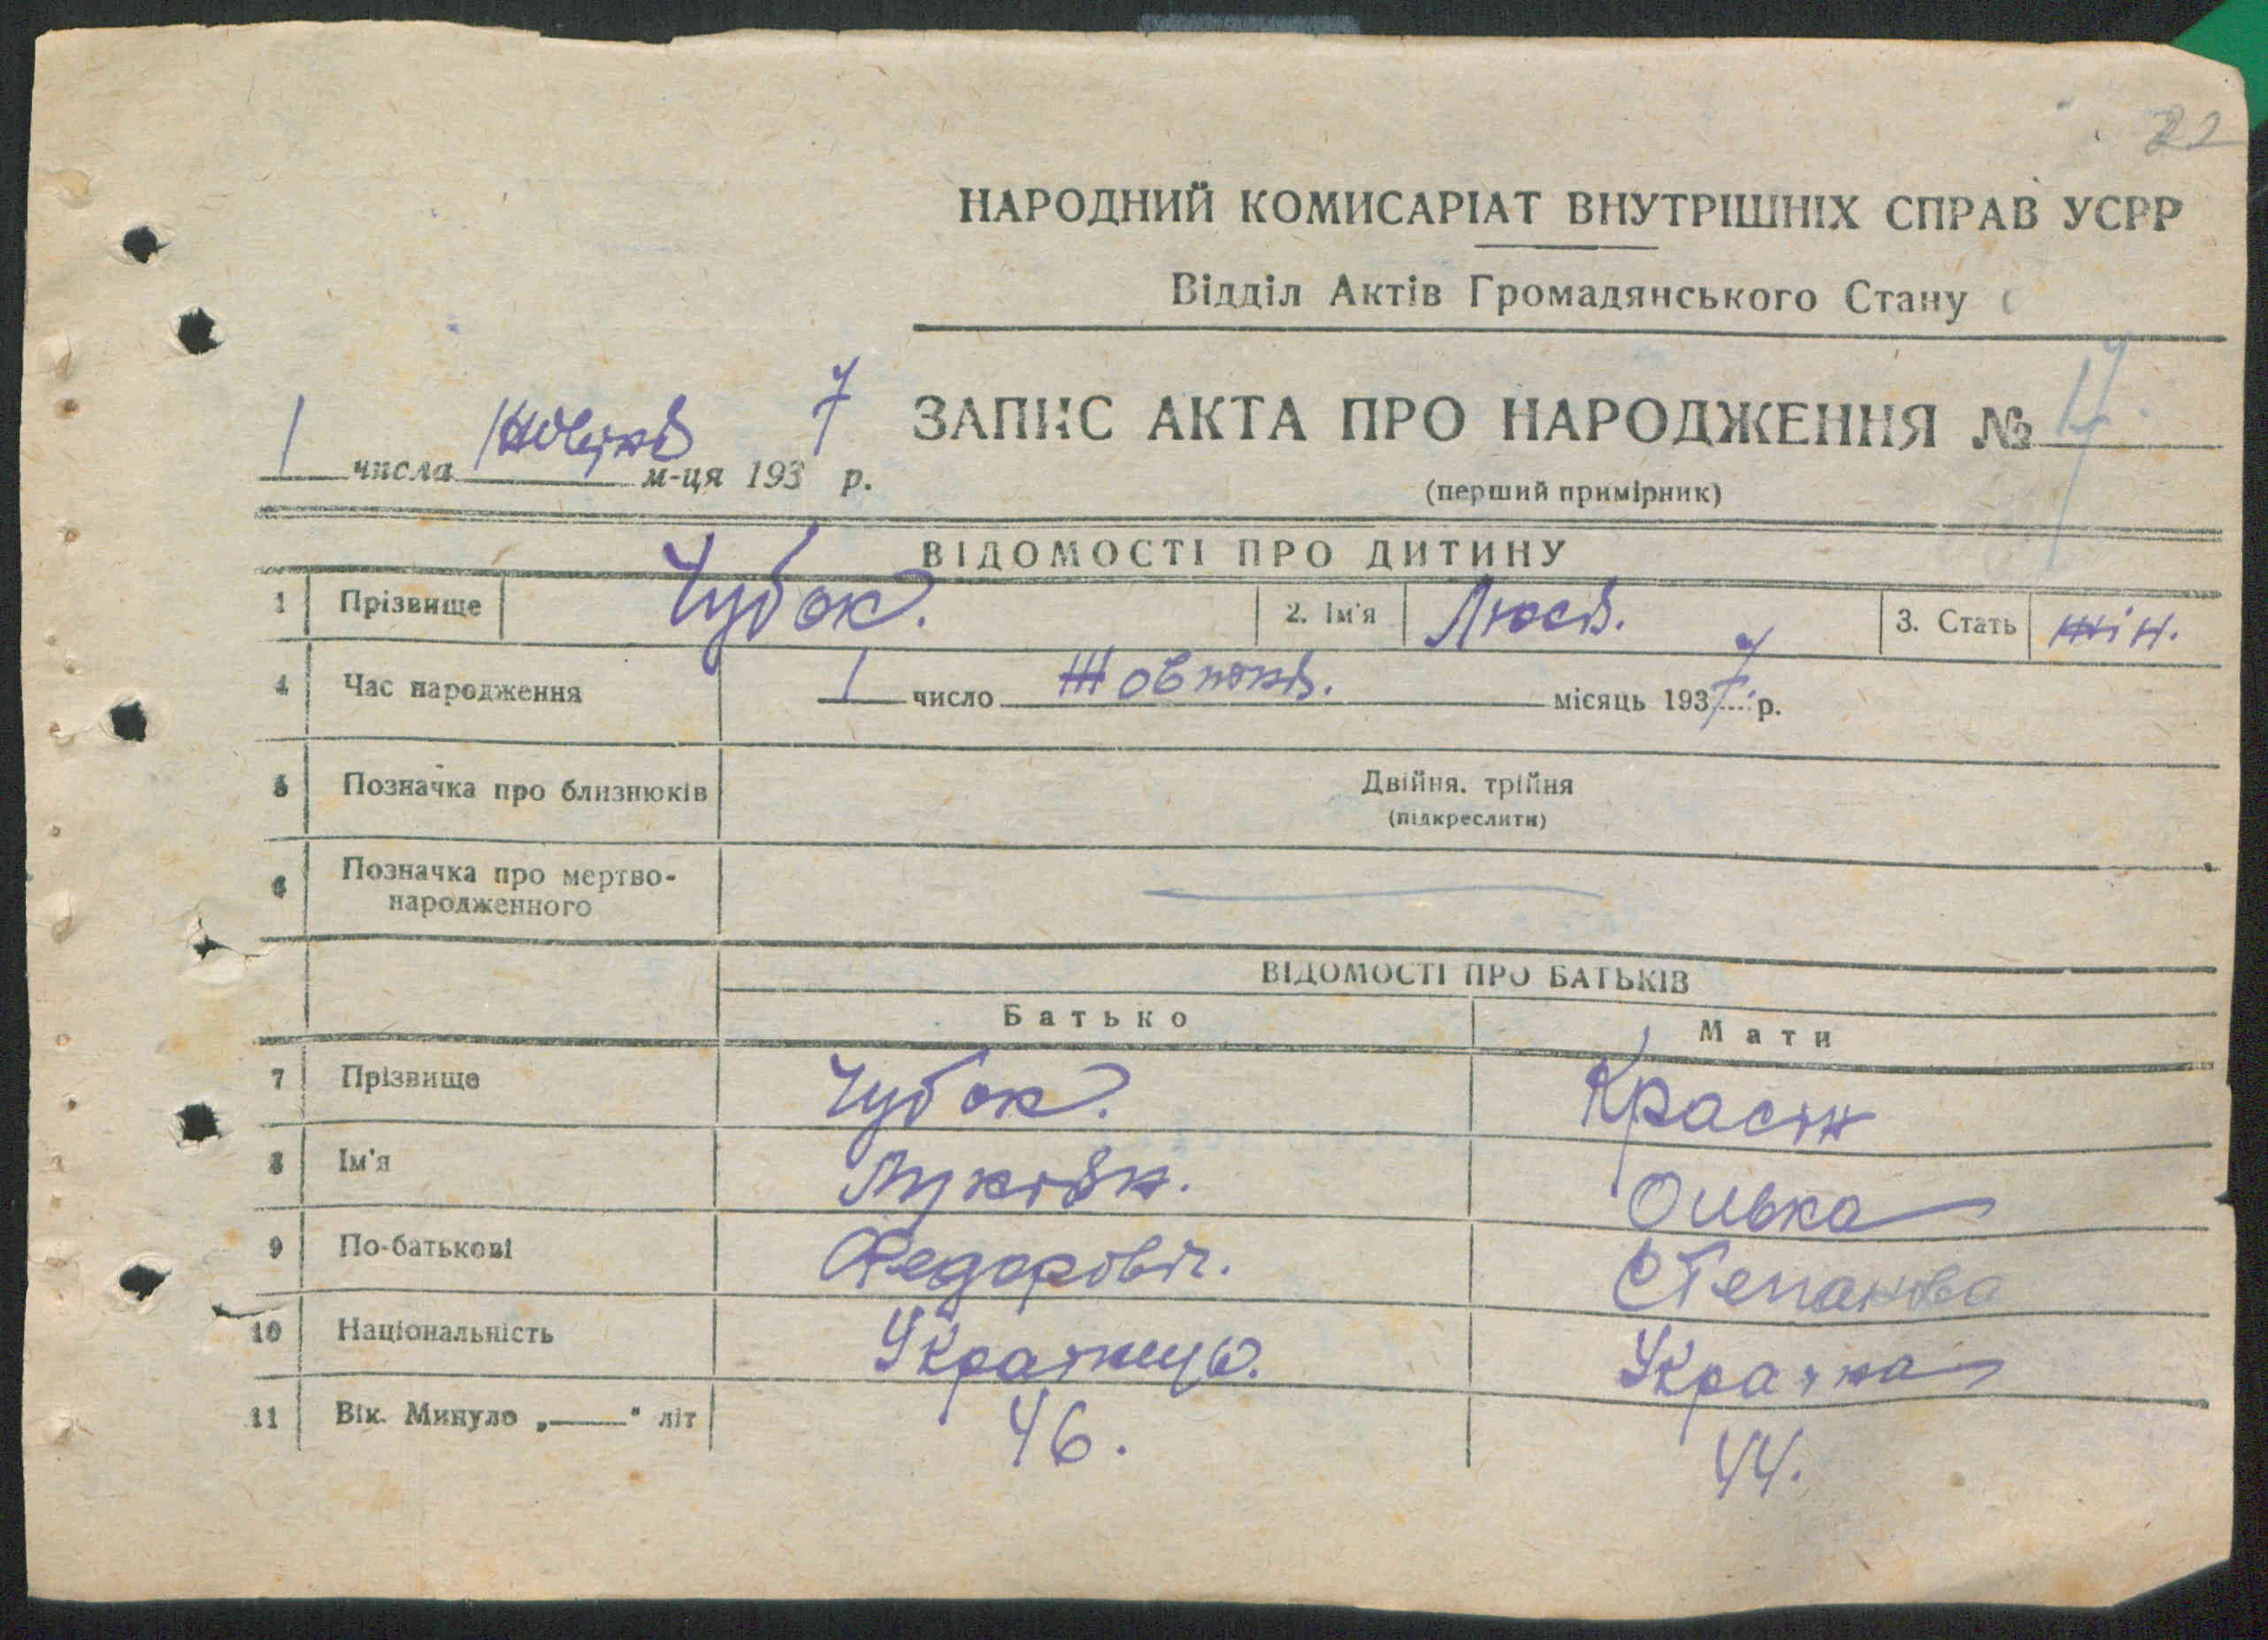 22
НАРОДНИЙ КОМИСАРІАТ ВНУТРІШНІХ СПРАВ УСРР
Відділ Актів Громадянського Стану
1 числа м-ця 1937 р.
ЗАПИС АКТА ПРО НАРОДЖЕННЯ №
(перший примірник)
ВІДОМОСТІ ПРО ДИТИНУ
1 Прізвище Чубок. 2. Ім'я Люся. 3. Стать жін.
4 Час народження 1 число Жовтня. місяць 1937 р.
5 Позначка про близнюків Двійня. трійня
(підкреслити)
6 Позначка про мертво-
народженного
ВІДОМОСТІ ПРО БАТЬКІВ
Батько Мати
7 Прізвище Чубок.
8 Ім'я Лукіян. Олька
9 По-батькові Федоровіч. Степанова
10 Національність
11 Вік. Минуло „——" літ 46. 44.